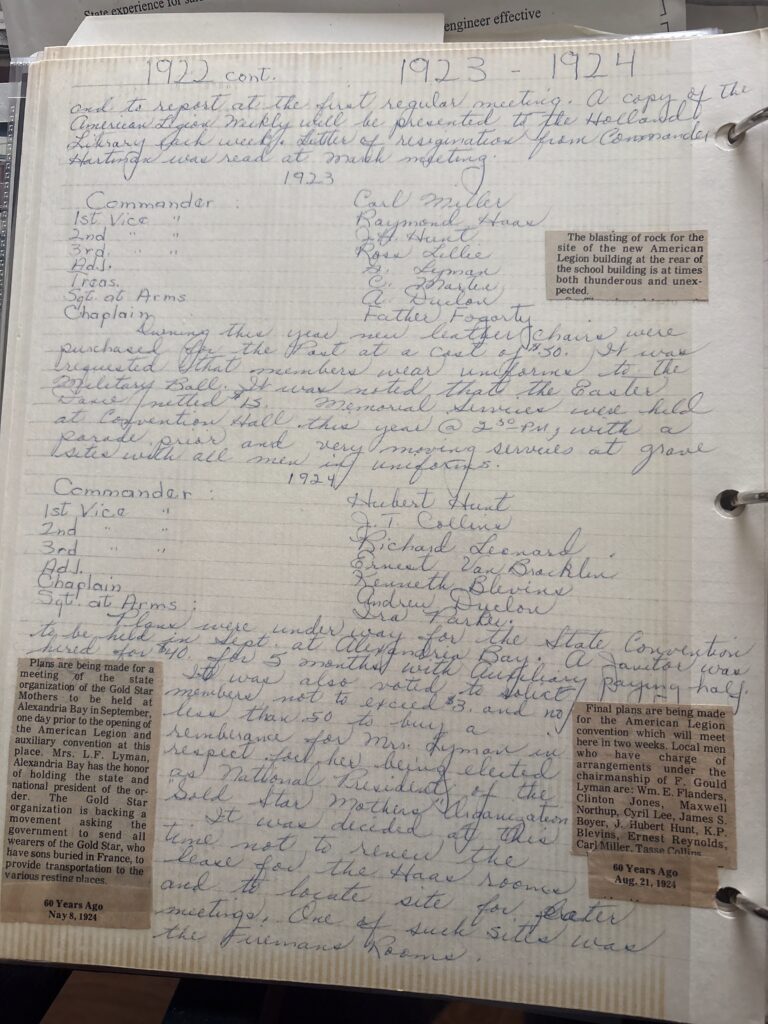 State experience for
engineer effective
1922 cont. 1923 - 1924
and to report at the first regular meeting. A copy of the
American Legion Weekly will be presented to the Holland
Library each week. Letter of resignation from Commander
Hartman was read at March meeting.
1923
Commander : Carl Miller
1st Vice " Raymond Haas
2nd " " J.H. Hunt
3rd " " Ross Lillie
Adj. Lyman
Treas. C. Martin
Sgt. at Arms A. Duclon
Chaplain Father Fogarty
The blasting of rock for the
site of the new American
Legion building at the rear of
the school building is at times
both thunderous and unex-
pected.
During this year new leather chairs were
purchased for the Post at a cost of $30. It was
requested that members wear uniforms to the
Military Ball. It was noted that the Easter
Dance netted $13. Memorial Services were held
at Convention Hall this year @ 2 30 PM, with a
parade prior and very moving services at grave
sites with all men in uniforms.
1924
Commander : Hubert Hunt
1st Vice " J.T. Collins
2nd " " Richard Leonard
3rd " " Ernest Van Brocklin
Adj. Kenneth Blevins
Chaplain Andrew Duclon
Sgt. at Arms : Ira Parker.
Plans were under way for the State Convention
to be held in Sept. at Alexandria Bay. A janitor was
hired for $40. for 5 months with Auxiliary paying half.
It was also voted to solicit
members not to exceed $3. and no
less than .50 to buy a
rememberance for Mrs. Lyman in
respect for her being elected
as National President of the
Gold Star Mothers Organization
It was decided at this
time not to renew the
lease for the Haas rooms
and to locate site for later
meetings. One of such sites was
the Firemans Rooms.
Plans are being made for a
meeting of the state
organization of the Gold Star
Mothers to be held at
Alexandria Bay in September,
one day prior to the opening of
the American Legion and
auxiliary convention at this
place. Mrs. L.F. Lyman,
Alexandria Bay has the honor
of holding the state and
national president of the or-
der. The Gold Star
organization is backing a
movement asking the
government to send all
wearers of the Gold Star, who
have sons buried in France, to
provide transportation to the
various resting places.
60 Years Ago
Nay 8, 1924
Final plans are being made
for the American Legion
convention which will meet
here in two weeks. Local men
who have charge of
arrangements under the
chairmanship of F. Gould
Lyman are: Wm. E. Flanders,
Clinton Jones, Maxwell
Northup, Cyril Lee, James S.
Boyer, J. Hubert Hunt, K.P.
Blevins, Ernest Reynolds,
Carl Miller, Tasse Collins
60 Years Ago
Aug. 21, 1924